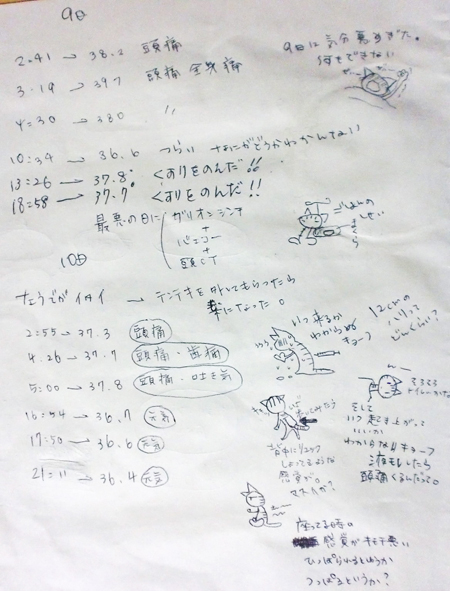 9日
2:41 → 38.2 頭痛
3:19 → 39.7 頭痛 全身痛
4:30 → 38.0 〃
10:34 → 36.6 つらい なにがどうかわかんない
13:26 → 37.8 くすりをのんだ!!
18:58 → 37.7 くすりをのんだ!!
最悪の日に
ガリオンシンチ
+
+
頭CT
9日は気分悪すぎた。
何もできない
10日
イタイ → テンテキを外してもらったら
楽になった。
2:55 → 37.3 頭痛
4:26 → 37.7 頭痛・歯痛
5:00 → 37.8 頭痛・吐き気
16:54 → 36.7 元気
17:50 → 36.6 元気
21:11 → 36.4 元気
いつ来るか
わからぬ
キョーフ
12cmの
ハリって
どんくらい?
背中にリュック
しょってるような
感覚が。
そして
いつ起き上がって
いいか
わからないキョーフ
液もれしたら
頭痛くるんだって。
座ってる時の
感覚がキモチ悪い
ひっぱられるというか
つっぱるというか?